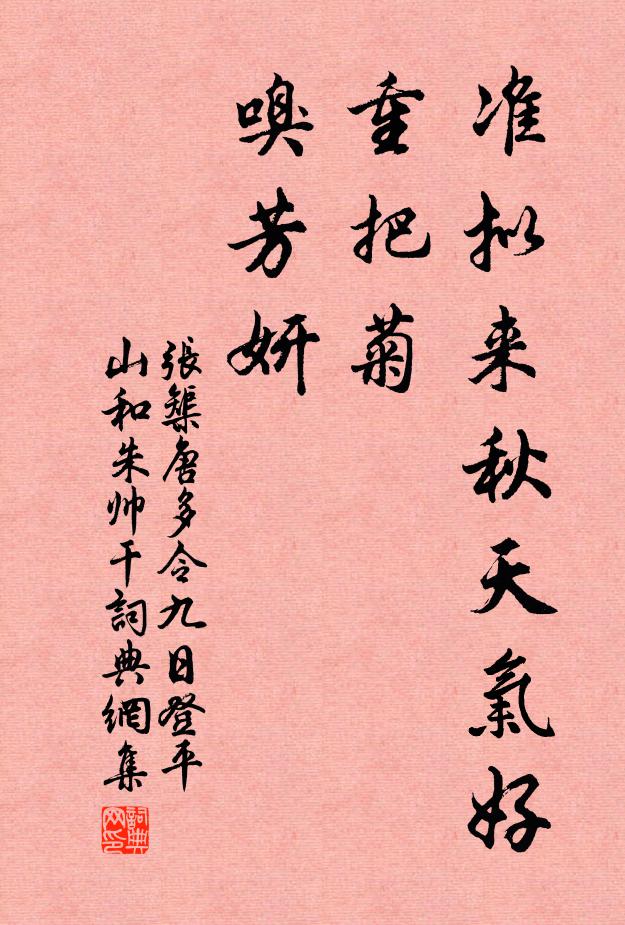 准拟来秋天氣好
重把菊
嗅芳妍
張榘唐多令九日登平
山和朱帅干詞典網集
詞典网印